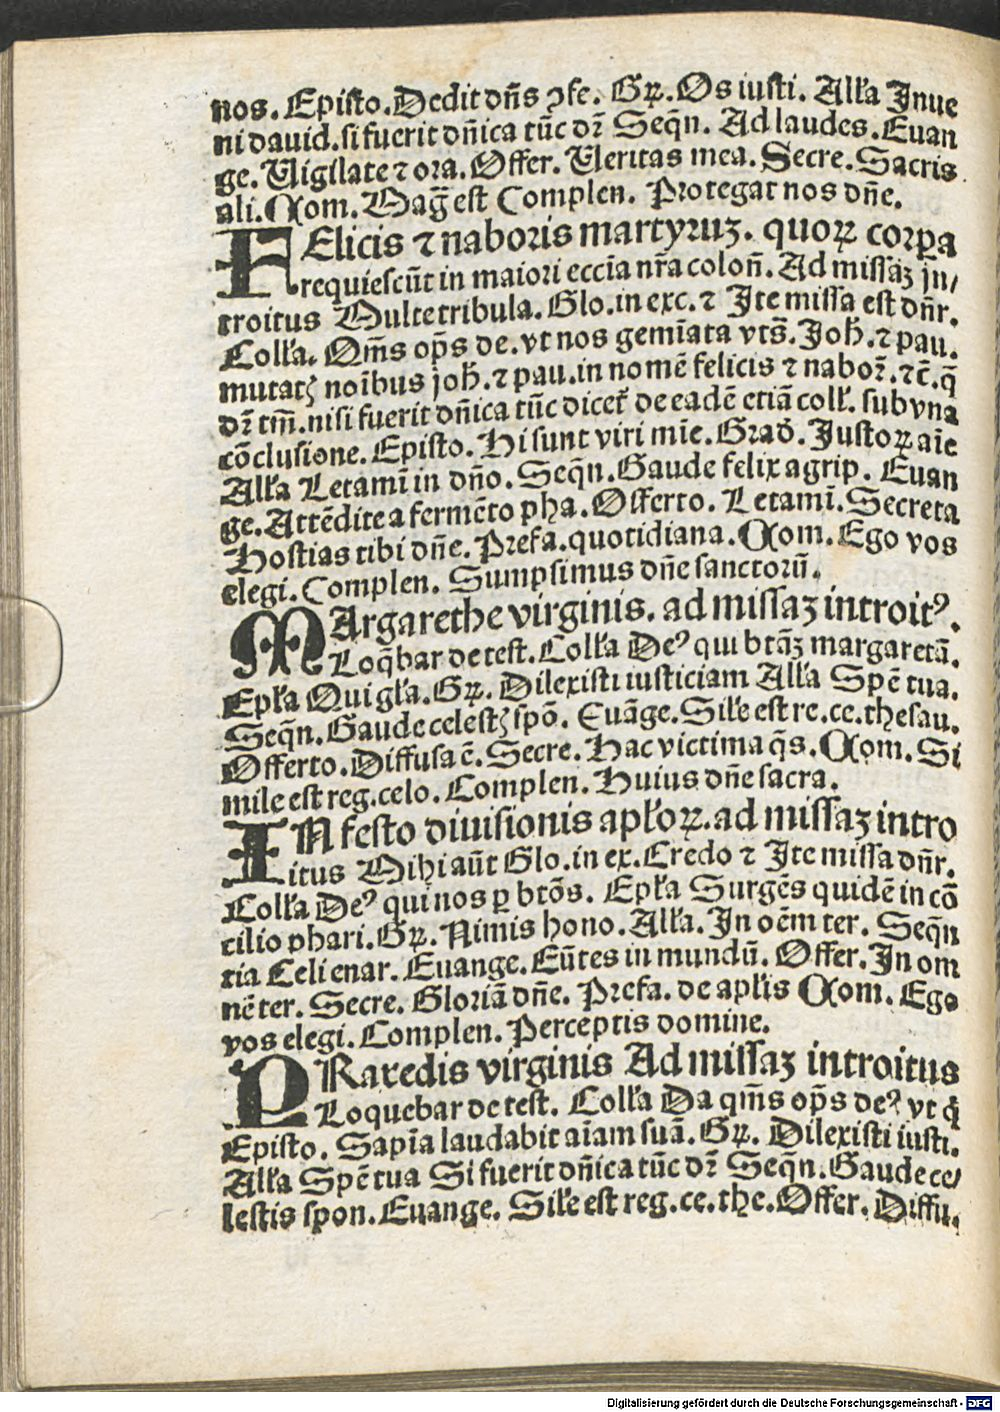 nos. Episto. Dedit dñs ꝯfe. Gꝝ. Os iusti. Alła Inue
ni dauid. si fuerit dñica tūc dꝛ̄ Seqñ. Ad laudes. Euan
ge. Vigilate ⁊ ora. Offer. Veritas mea. Secre. Sacris
ali. Com. Magē est Complen. Protegat nos dñe.
FElicis ⁊ naboris martyruꝫ. quoꝝ corꝑa
requiescūt in maiori eccīa nr̄a coloñ. Ad missaꝫ in/
troitus Multe tribula. Glo. in exc. ⁊ Ite missa est dñr.
Colła. Om̄s op̄s de. vt nos gemīata vts̄. Joh̄. ⁊ pau.
mutatꝭ noībus joh̄. ⁊ pau. in nomē felicis ⁊ naboꝛ̄. ⁊c̄. q̄
dꝛ̄ tm̄. nisi fuerit dñica tūc dicet̄ de eadē etiā coll̄. sub vna
cōclusione. Episto. Hi sunt viri mīe. Grad̄. Iustoꝝ aīe
Alła Letamī in dño. Seqñ. Gaude felix agrip. Euan
ge. Attēdite a fermēto pha. Offerto. Letamī. Secreta
Hostias tibi dñe. Prefa. quotidiana. Com. Ego vos
elegi. Complen. Sumpsimus dñe sanctorū.
MArgarethe virginis. ad missaꝫ introitꝰ.
Loq̄bar de test. Colła Deꝰ qui btāꝫ margaretā.
Epła Qui gła. Gꝝ. Dilexisti iusticiam Alła Spē tua.
Seqñ. Gaude celestꝭ spō. Euāge. Sile est re. ce. thesau.
Offerto. Diffusa ē. Secre. Hac victima q̄s. Com. Si
mile est reg. celo. Complen. Huius dñe sacra.
IN festo diuisionis apłoꝝ. ad missaꝫ intro
itus Mihi aūt Glo. in ex. Credo ⁊ Ite missa dñr.
Colła Deꝰ qui nos ꝑ btōs. Epła Surgēs quidē in cō
cilio phari. Gꝝ. Nimis hono. Alła. In oēm ter. Seqñ
tia Celi enar. Euange. Eūtes in mundū. Offer. In om
nē ter. Secre. Gloriā dñe. Prefa. de apłis Com. Ego
vos elegi. Complen. Perceptis domine.
PRaxedis virginis Ad missaꝫ introitus
Loquebar de test. Colła Da qm̄s op̄s deꝰ vt q̄
Episto. Sapīa laudabit aīam suā. Gꝝ. Dilexisti iusti.
Alła Spē tua Si fuerit dñica tūc dꝛ̄ Seqñ. Gaude ce/
lestis spon. Euange. Sile est reg. ce. the. Offer. Diffu.
Digitalisierung gefördert durch die Deutsche Forschungsgemeinschaft - DFG